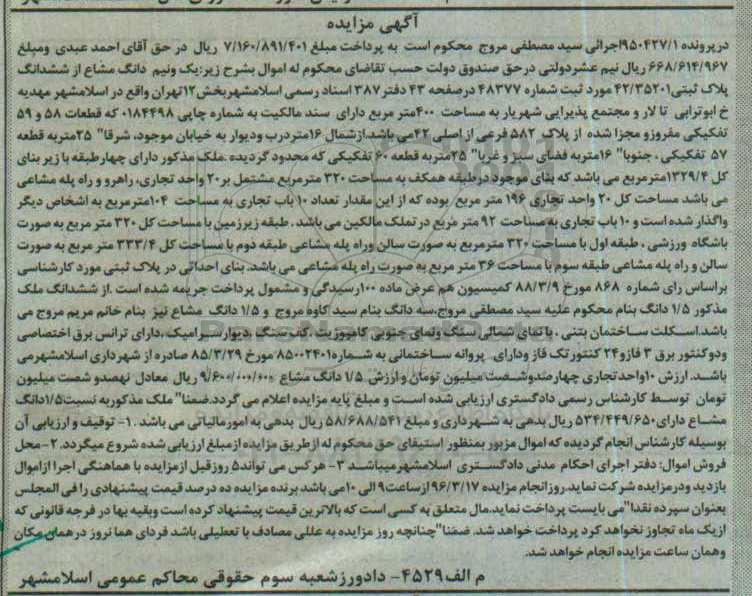 آگهی مزایده
درپرونده ۹۵۰۴۲۷/۱اجرائی سید مصطفی مروج محکوم است به پرداخت مبلغ ۷/۱۶۰/۸۹۱/۴۰۱ ریال در حق آقای احمد عبدی ومبلغ
۶۶۸/۶۱۴/۹۶۷ ریال نیم عشردولتی درحق صندوق دولت حسب تقاضای محکوم له اموال بشرح زیر:یک ونیم دانگ مشاع از ششدانگ
پلاک ثبتی۴۲/۳۵۲۰۱ مورد ثبت شماره ۴۸۳۷۷ درصفحه ۴۳ دفتر۳۸۷ اسناد رسمی اسلامشهربخش۱۲تهران واقع در اسلامشهر مهدیه
خ ابوترابی تا لار و مجتمع پذیرایی شهریار به مساحت ۴۰۰متر مربع دارای سند مالکیت به شماره چاپی ۰۱۸۴۴۹۸ که قطعات ۵۸ و ۵۹
تفکیکی مفروزو مجزا شده از پلاک ۵۸۲ فرعی از اصلی ۴۲می باشد.ازشمال ۱۶متردرب ودیوار به خیابان موجود، شرقا" ۲۵متربه قطعه
۵۷ تفکیکی ، جنوبا" ۱۶متربه فضای سبز و غربا" ۲۵متربه قطعه ۶۰ تفکیکی که محدود گردیده .ملک مذکور دارای چهارطبقه با زیر بنای
کل ۱۳۲۹/۴مترمربع می باشد که بنای موجود درطبقه همکف به مساحت ۳۲۰ مترمربع مشتمل بر۲۰ واحد تجاری، راهرو و راه پله مشاعی
می باشد مساحت کل ۲۰ واحد تجاری ۱۹۶ متر مربع بوده که از این مقدار تعداد ۱۰ باب تجاری به مساحت ۱۰۴مترمربع به اشخاص دیگر
واگذار شده است و ۱۰ باب تجاری به مساحت ۹۲ متر مربع درتملک مالکین می باشد . طبقه زیرزمین با مساحت کل ۳۲۰ متر مربع به صورت
باشگاه ورزشی ، طبقه اول با مساحت ۳۲۰ مترمربع به صورت سالن وراه پله مشاعی طبقه دوم با مساحت کل ۳۳۳/۴ متر مربع به صورت
سالن و راه پله مشاعی طبقه سوم با مساحت ۳۶ متر مربع به صورت راه پله مشاعی می باشد. بنای احداثی در پلاک ثبتی مورد کارشناسی
براساس رای شماره ۸۶۸ مورخ ۸۸/۳/۹ کمیسیون هم عرض ماده ۱۰۰رسیدگی و مشمول پرداخت جریمه شده است .از ششدانگ ملک
مذکور ۱/۵ دانگ بنام محکوم علیه سید مصطفی مروج،سه دانگ بنام سید کاوه مروج و ۱/۵ دانگ مشاع نیز بنام خانم مریم مروج می
باشد.اسکلت ساختمان بتنی ، با نمای شمالی سنگ ونمای جنوبی کامپوزیت ،کف سنگ ،دیوارسرامیک ،دارای ترانس برق اختصاصی
ودوکنتور برق ۳ فازو۲۴ کنتورتک فاز ودارای پروانه ساختمانی به شماره۸۵۰۰۲۴۰۱ مورخ ۸۵/۳/۲۹ صادره از شهرداری اسلامشهرمی
باشد. ارزش ۱۰واحدتجاری چهارصدوشصت میلیون تومان وارزش ۱/۵ دانگ مشاع ۹/۶۰۰/۰۰۰/۰۰۰ ریال معادل نهصدو شصت میلیون
تومان توسط کارشناس رسمی دادگستری ارزیابی شده است و مبلغ پایه مزایده اعلام می گردد.ضمنا" ملک مذکوربه نسبت۱/۵دانگ
مشاع دارای۵۳۴/۴۴۹/۶۵۰ ریال بدهی به شهرداری و مبلغ ۵۸/۶۸۸/۵۴۱ ریال بدهی به امورمالیاتی می باشد .۱- توقیف و ارزیابی آن
بوسیله کارشناس انجام گردیده که اموال مزبور بمنظور استیفای حق محکوم له ازطریق مزایده ازمبلغ ارزیابی شده شروع میگردد.۲-محل
فروش اموال: دفتر اجرای احکام مدنی دادگستری اسلامشهرمیباشد ۳- هرکس می تواند۵ روزقبل ازمزایده با هماهنگی اجرا ازاموال
بازدید ودرمزایده شرکت نماید.روزانجام مزایده ۹۶/۳/۱۷ ازساعت۹ الی ۱۰می باشد برنده مزایده ده درصد قیمت پیشنهادی را فی المجلس
بعنوان سپرده نقدا"می بایست پرداخت نماید.مال متعلق به کسی است که بالاترین قیمت پیشنهاد کرده است وبقیه بها در فرجه قانونی که
ازیک ماه تجاوز نخواهد کرد پرداخت خواهد شد. ضمنا"چنانچه روز مزایده به عللی مصادف با تعطیلی باشد فردای هما نروز درهمان مکان
وهمان ساعت مزایده انجام خواهد شد.
م الف۴۵۲۹- دادورزشعبه سوم حقوقی محاکم عمومی اسلامشهر